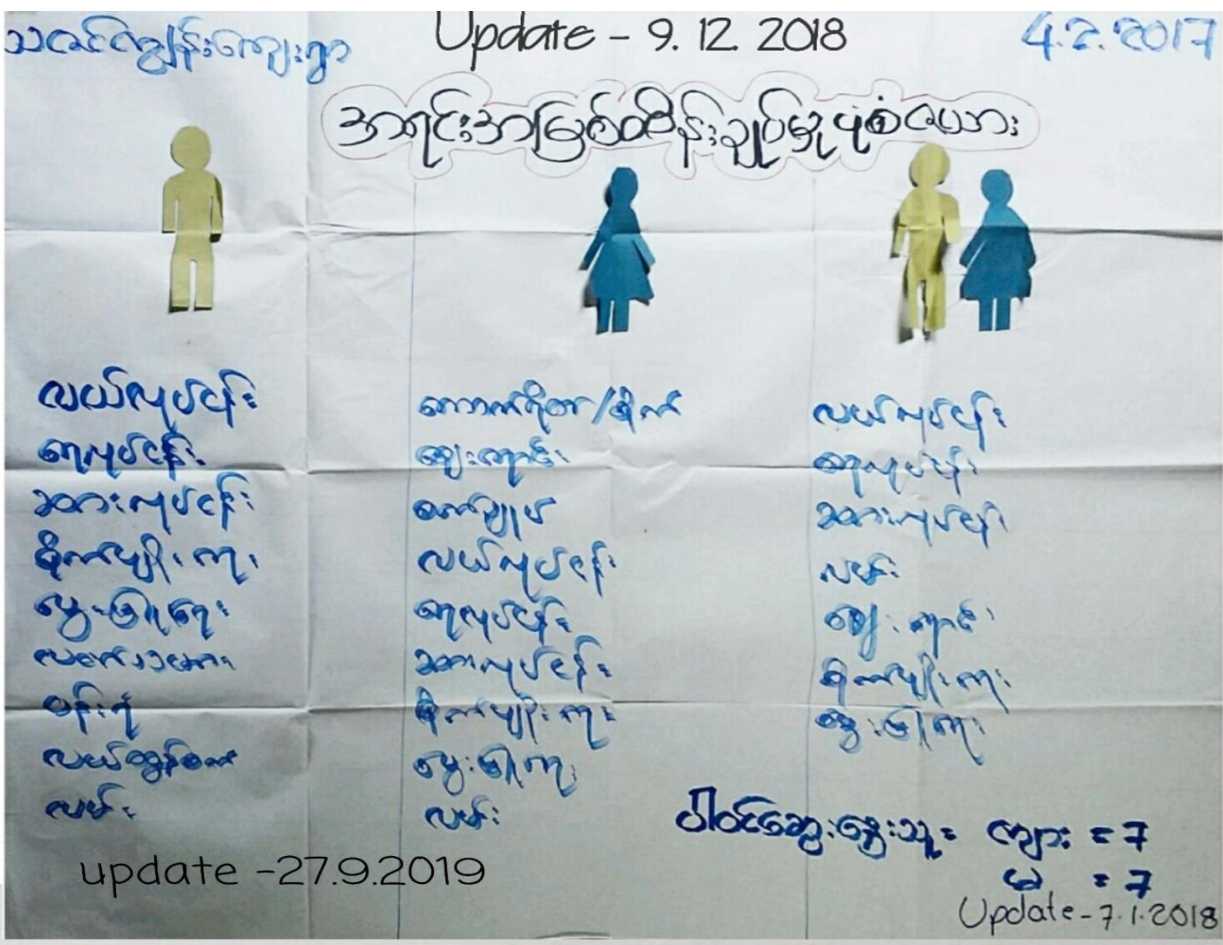 သဇင်ကျွန်းကျေးရွာ
Update - 9. 12. 2018
4.2.2017
အရင်းအမြစ်ထိန်းချုပ်မှုပုံစံဇယား
လယ်လုပ်ငန်း
ရေလုပ်ငန်း
ဆားလုပ်ငန်း
စိုက်ပျိုးကုန်း
မွေးမြူရေး
ပန်းရံ
လယ်ထွန်စက်
လမ်း
ကောက်ရိတ်/စိုက်
ဈေးရောင်း
စက်ချုပ်
လယ်လုပ်ငန်း
ရေလုပ်ငန်း
ဆားလုပ်ငန်း
စိုက်ပျိုးရေး
မွေးမြူရေး
လမ်း
လယ်လုပ်ငန်း
ရေလုပ်ငန်း
ဆားလုပ်ငန်း
လမ်း
ဈေးရောင်း
စိုက်ပျိုးရေး
မွေးမြူရေး
ပါဝင်ဆွေးနွေးသူ = ကျား = 7
မ = 7
Update - 7.1.2018
update -27.9.2019